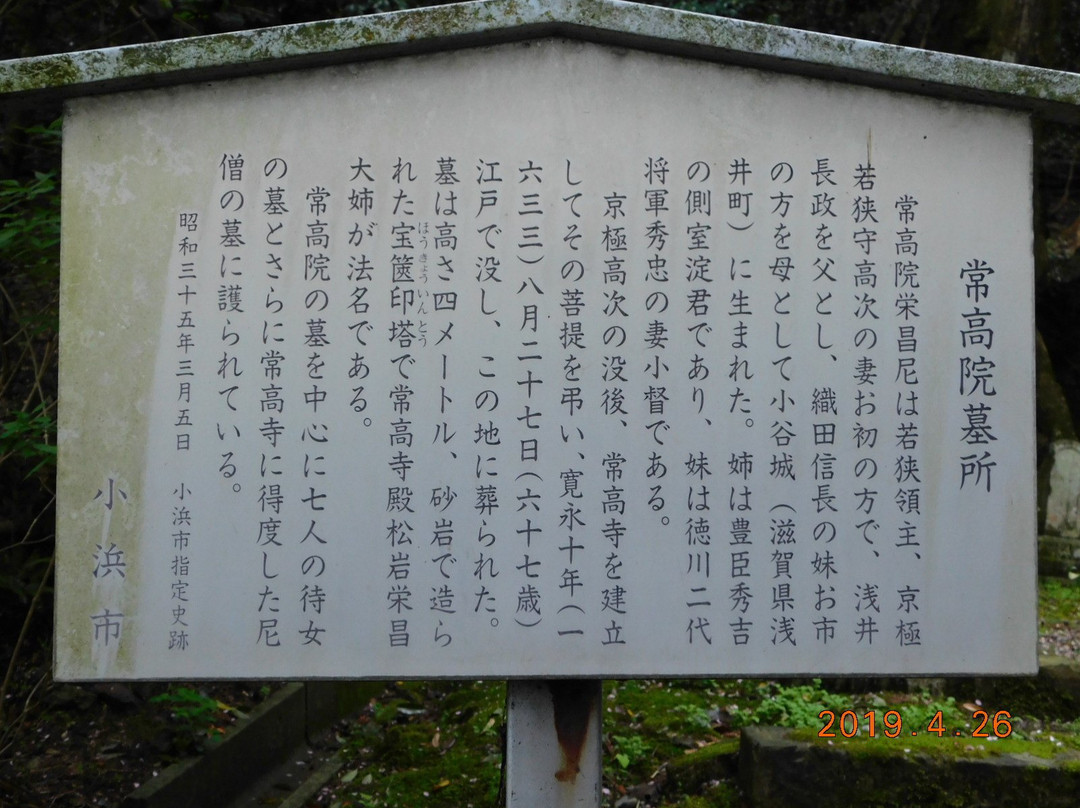 常高院墓所
常高院栄昌尼は若狭領主、京極
若狭守高次の妻お初の方で、浅井
長政を父とし、織田信長の妹お市
の方を母として小谷城（滋賀県浅
井町）に生まれた。姉は豊臣秀吉
の側室淀君であり、妹は徳川二代
将軍秀忠の妻小督である。
京極高次の没後、常高寺を建立
してその菩提を弔い、寛永十年（一
六三三）八月二十七日（六十七歳）
江戸で没し、この地に葬られた。
墓は高さ四メートル、砂岩で造ら
れた宝篋印塔で常高寺殿松岩栄昌
ほうきょういんとう
大姉が法名である。
常高院の墓を中心に七人の待女
の墓とさらに常高寺に得度した尼
僧の墓に護られている。
昭和三十五年三月五日 小浜市指定史跡
小浜市
2019.4.26